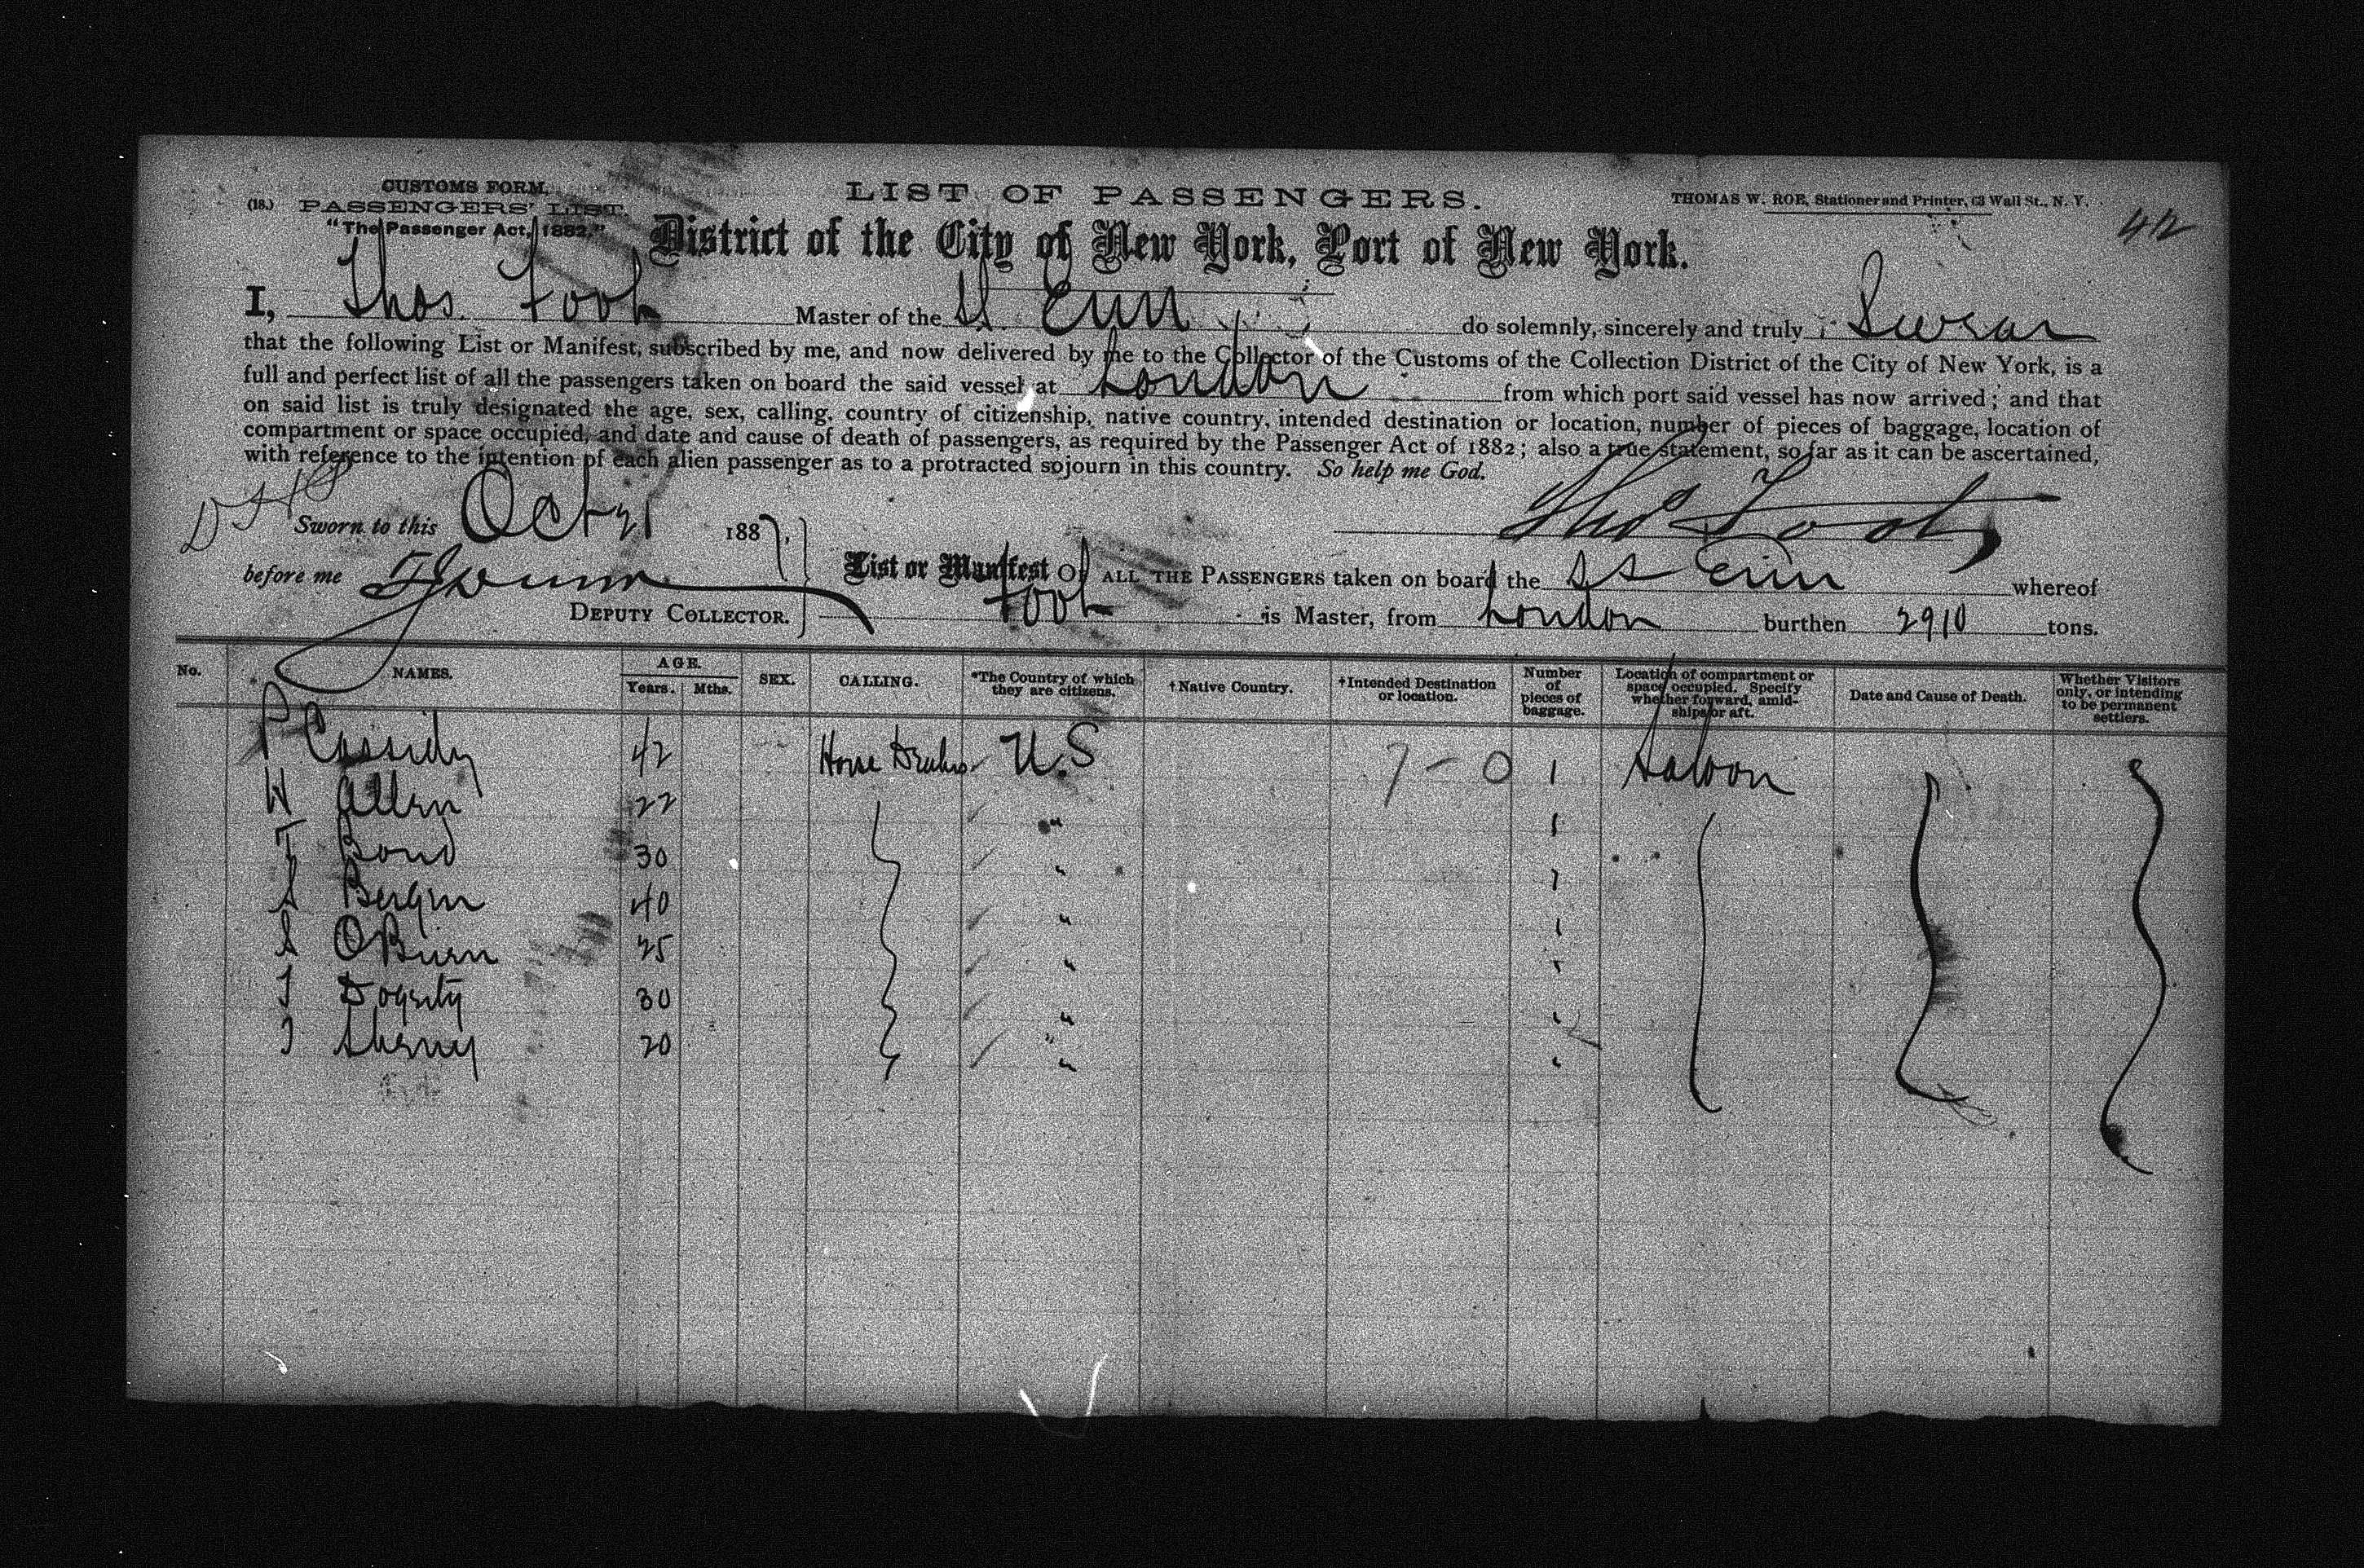 CUSTOMS FORM.
(18.) PASSENGERS' LIST.
"The Passenger Act, 1882."
LIST OF PASSENGERS.
THOMAS W. ROE, Stationer and Printer, 63 Wall St., N. Y.
42
District of the City of New York, Port of New York.
I, Thos. Foot Master of the SS. Erin do solemnly, sincerely and truly Swear
that the following List or Manifest, subscribed by me, and now delivered by me to the Collector of the Customs of the Collection District of the City of New York, is a
full and perfect list of all the passengers taken on board the said vessel at London from which port said vessel has now arrived; and that
on said list is truly designated the age, sex, calling, country of citizenship, native country, intended destination or location, number of pieces of baggage, location of
compartment or space occupied, and date and cause of death of passengers, as required by the Passenger Act of 1882; also a true statement, so far as it can be ascertained,
with reference to the intention of each alien passenger as to a protracted sojourn in this country. So help me God.
Sworn to this Oct 21 1887,
Thos Foot
before me
DEPUTY COLLECTOR.
List or Manifest OF ALL THE PASSENGERS taken on board the SS Erin whereof
Foot is Master, from London burthen 2910 tons.
No. NAMES. AGE. Years. Mths. SEX. CALLING. *The Country of which they are citizens. †Native Country. †Intended Destination or location. Number of pieces of baggage. Location of compartment or space occupied. Specify whether forward, amid-ships or aft. Date and Cause of Death. Whether Visitors only, or intending to be permanent settlers.
P Cassidy 42 Horse Dealers U.S 7-0 1 Saloon
H Allen 22 " 1
T Bond 30 " 1
S Bergin 40 " 1
S OBrien 25 " 1
J Dogerty 30 " 1
J 20 " 1